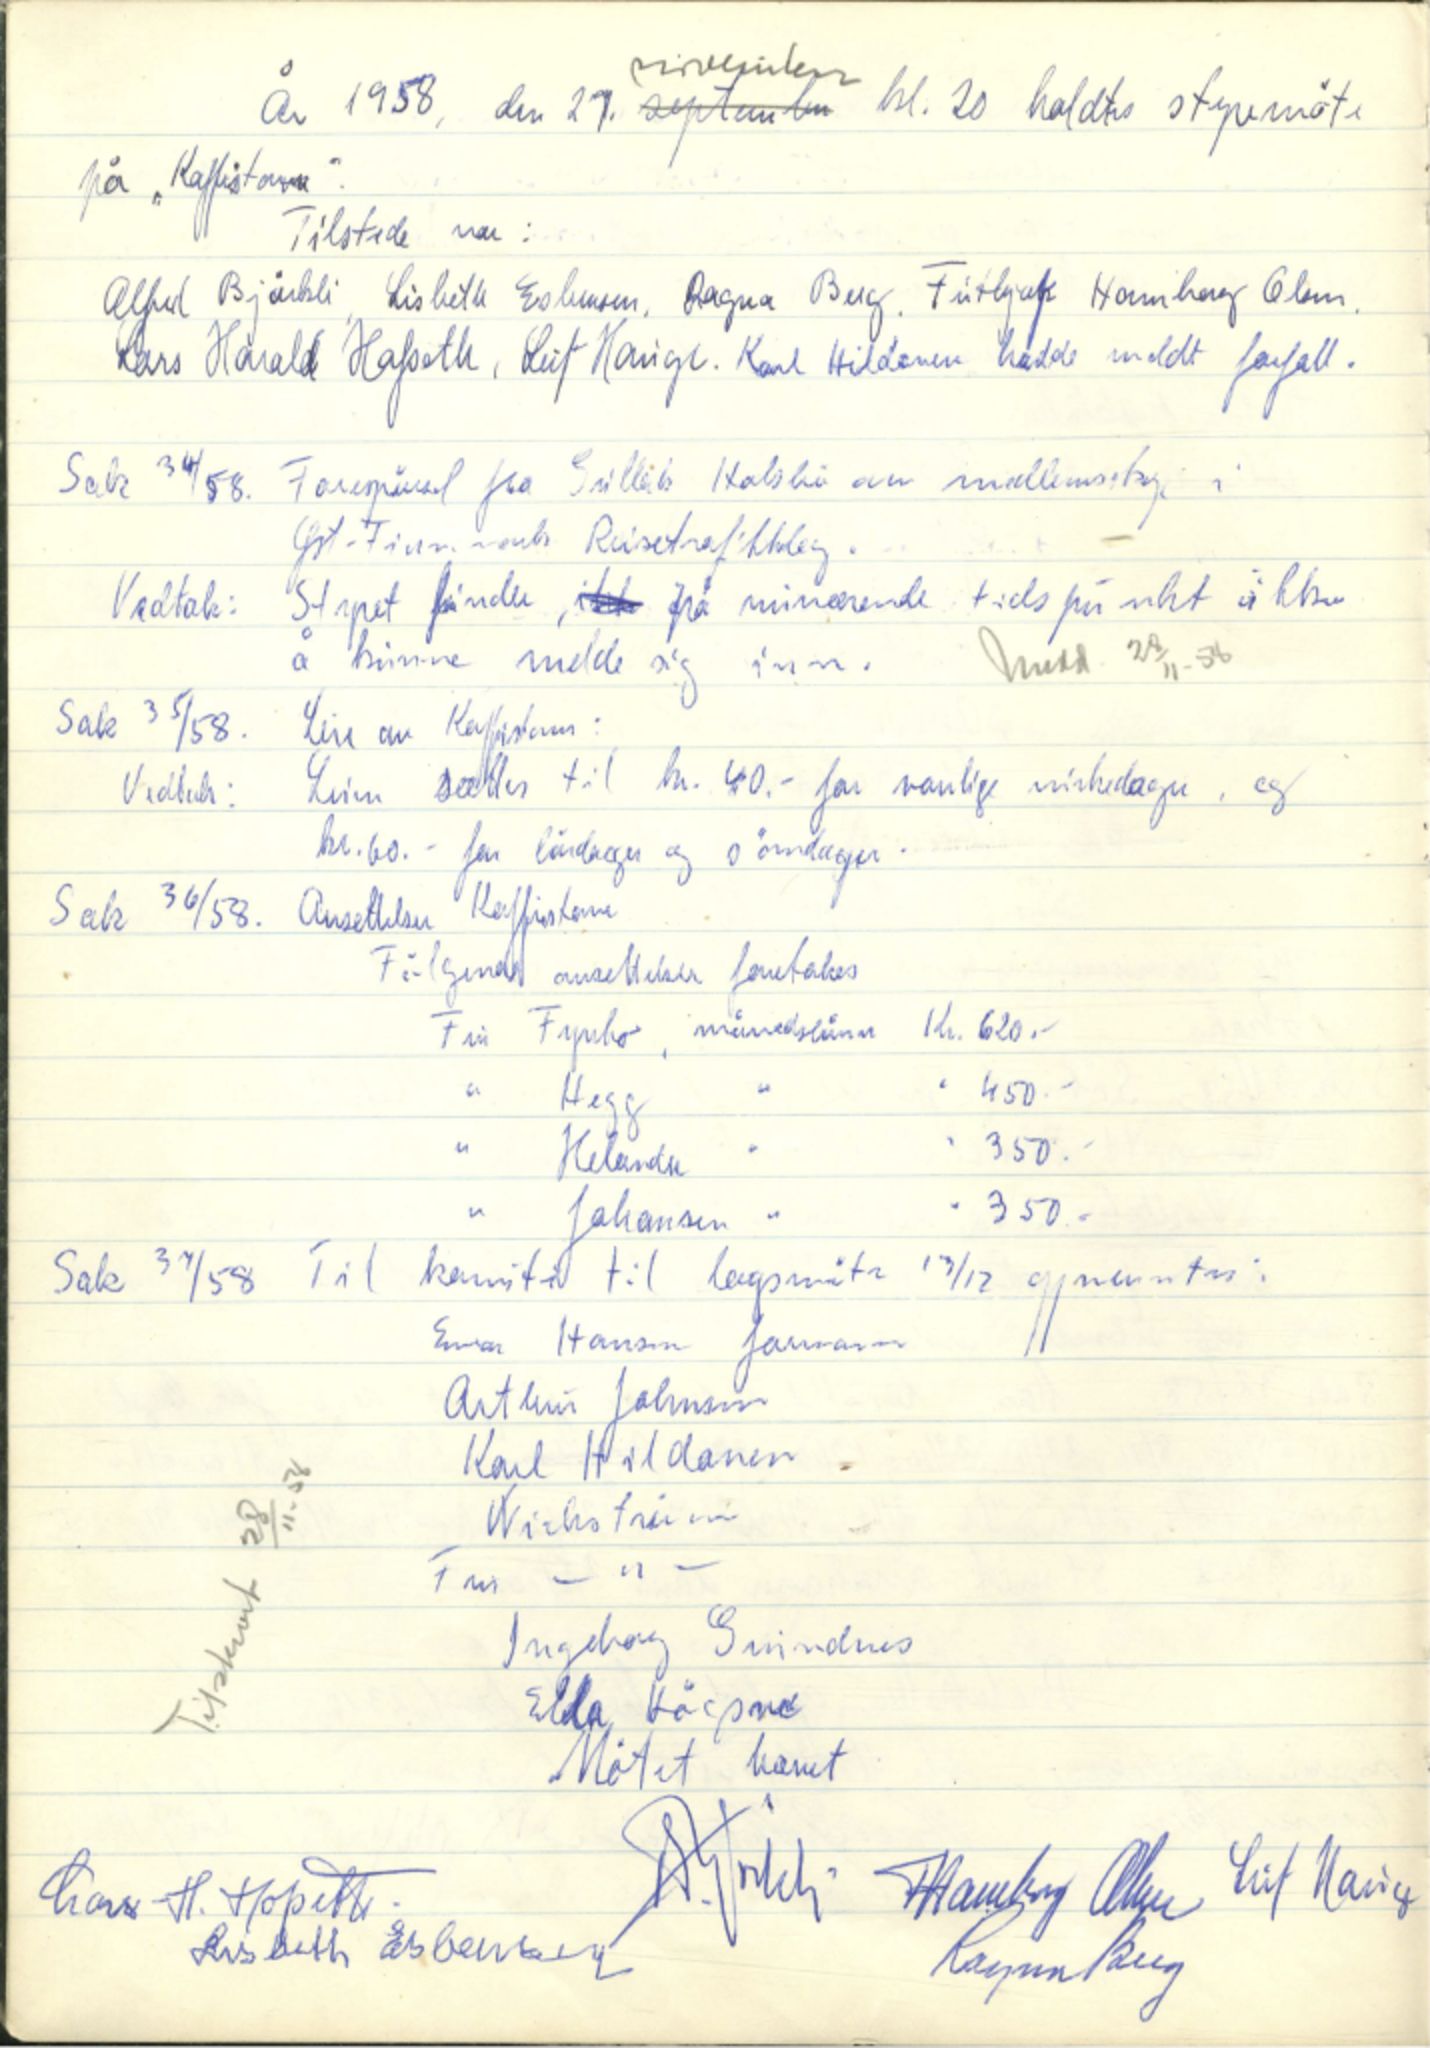 november
År 1958, den 27. september kl. 20 holdtes styremöte
på „Kaffistova".
Tilstede var:
Alfred Björkli, Lisbeth Esbensen, Ragna Berg, Fritjof Hamborg Olsen,
Lars Harald Hopseth, Leif Hauge. Karl Hildonen hadde meldt forfall.
Sak 34/58. Forespörsel fra om medlemskap i
Öst-Finnmark Reisetrafikklag.
Vedtak: Styret finder, på nuværende tidspunkt ikke
å kunne melde sig inn. Medd 28/11-58
Sak 35/58. Leie av Kaffistova:
Vedtak: Leien settes til kr. 40.- for vanlige virkedager, og
kr. 60.- for lördager og söndager.
Sak 36/58. Ansettelser Kaffistova
Fölgende ansettelser foretakes
Fru månedslönn Kr. 620.-
" Hegg " " 450.-
" Helander " " 350.-
" Johansen " " 350.-
Sak 37/58 Til komité til lagsmöte 13/12 oppnevntes:
Einar Hansen formann
Arthur Johnsen
Karl Hildonen
Wickström
Fru - " -
Ingeborg
Ella
Mötet hevet
Tilskrevet 28/11-58
Lars H. Hopseth. A. Björkli F Hamborg Olsen Leif Hauge
Lisbeth Esbensen Ragna Berg